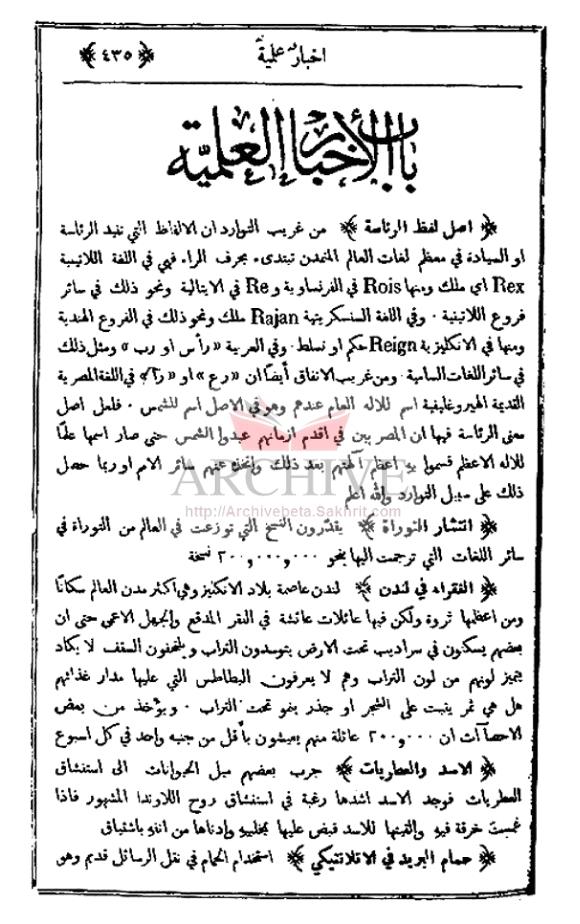 اخبار علمية
﴿ ٤٣٥ ﴾
باب الأخبار العلميّة
﴿ اصل لفظ الرئاسة ﴾ من غريب التوارد ان الالفاظ التي تفيد الرئاسة
او السيادة في معظم لغات العالم المتمدن تبتدىء بحرف الراء فهي في اللغة اللاتينية
Rex اي ملك ومنها Rois في الفرنساوية و Re في الايتالية ونحو ذلك في سائر
فروع اللاتينية ٠ وفي اللغة السنسكريتية Rajan ملك ونحو ذلك في الفروع الهندية
ومنها في الانكليزية Reign حكم او تسلط ٠ وفي العربية «رأس او رب» ومثل ذلك
في سائر اللغات السامية ٠ ومن غريب الاتفاق أيضاً ان «رع» او «رآ» في اللغة المصرية
القديمة الهيروغليفية اسم للاله العام عندهم وهو في الاصل اسم للشمس ٠ فلعل اصل
معنى الرئاسة فيها ان المصريين في اقدم ازمانهم عبدوا الشمس حتى صار اسمها علماً
للاله الاعظم فسموا به اعظم آلهتهم بعد ذلك واتخذ عنهم سائر الامم او ربما حصل
ذلك على سبيل التوارد والله اعلم
ARCHIVE
http://Archivebeta.Sakhrit.com
﴿ انتشار التوراة ﴾ يقدّرون النسخ التي توزعت في العالم من التوراة في
سائر اللغات التي ترجمت اليها بنحو ٢٠٠,٠٠٠,٠٠٠ نسخة
﴿ الفقراء في لندن ﴾ لندن عاصمة بلاد الانكليز وهي اكثر مدن العالم سكاناً
ومن اعظمها ثروة ولكن فيها عائلات عائشة في الفقر المدقع والجهل الاعمى حتى ان
بعضهم يسكنون في سراديب تحت الارض يتوسدون التراب ويلتحفون السقف لا يكاد
يتميز لونهم من لون التراب وهم لا يعرفون البطاطس التي عليها مدار غذائهم
هل هي ثمر ينبت على الشجر او جذر ينمو تحت التراب ٠ ويؤخذ من بعض
الاحصاآت ان ٢٠٠,٠٠٠ عائلة منهم يعيشون بأقل من جنيه واحد في كل اسبوع
﴿ الاسد والعطريات ﴾ جرب بعضهم ميل الحيوانات الى استنشاق
العطريات فوجد الاسد اشدها رغبة في استنشاق روح اللاوندا المشهور فاذا
غمست خرقة فيه والقيتها للاسد قبض عليها بمخلبيه وادناها من انفه باشتياق
﴿ حمام البريد في الاتلانتيكي ﴾ استخدام الحمام في نقل الرسائل قديم وهو